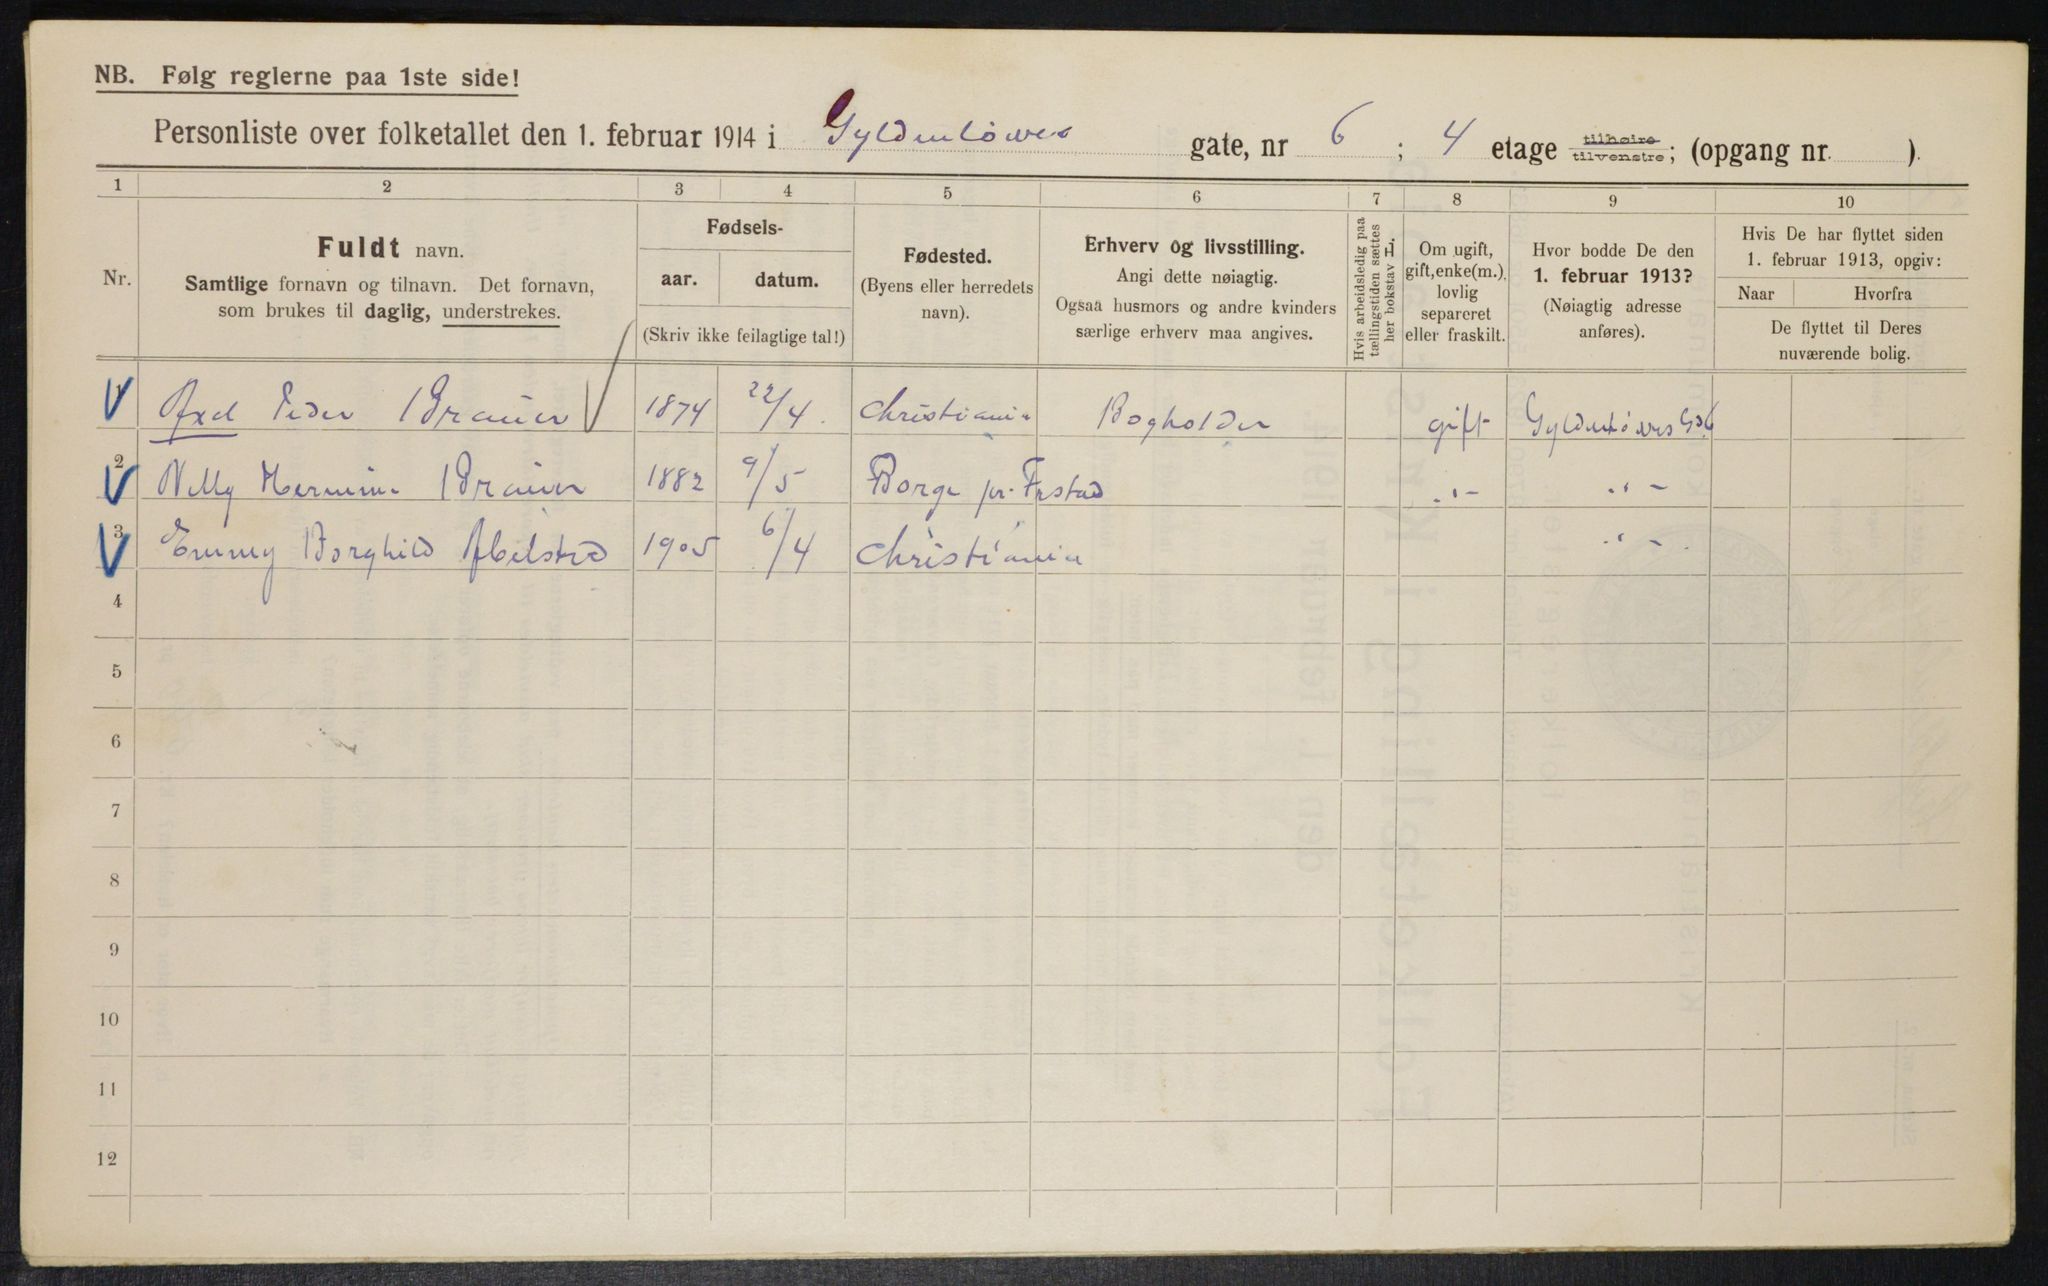 NB. Følg reglerne paa 1ste side!
Personliste over folketallet den 1. februar 1914 i Gyldenløves gate, nr 6 ; 4 etage tilhøire tilvenstre; (opgang nr. ).
1 2 3 4 5 6 7 8 9 10
Nr.
Fuldt navn.
Samtlige fornavn og tilnavn. Det fornavn,
som brukes til daglig, understrekes.
Fødsels-
aar. datum.
(Skriv ikke feilagtige tal!)
Fødested.
(Byens eller herredets
navn).
Erhverv og livsstilling.
Angi dette nøiagtig.
Ogsaa husmors og andre kvinders
særlige erhverv maa angives.
Hvis arbeidsledig paa
tællingstiden sættes
her bokstav L.
Om ugift,
gift, enke(m.),
lovlig
separeret
eller fraskilt.
Hvor bodde De den
1. februar 1913?
(Nøiagtig adresse
anføres).
Hvis De har flyttet siden
1. februar 1913, opgiv:
Naar Hvorfra
De flyttet til Deres
nuværende bolig.
1 Axel Peder Brauer 1874 22/4 Christiania Bogholder gift Gyldenløves Gd 6
2 Nelly Hermine Brauer 1882 9/5 Borge pr. Frstad -"- -"-
3 Emmy Borghild 1905 6/4 Christiania -"-
4
5
6
7
8
9
10
11
12